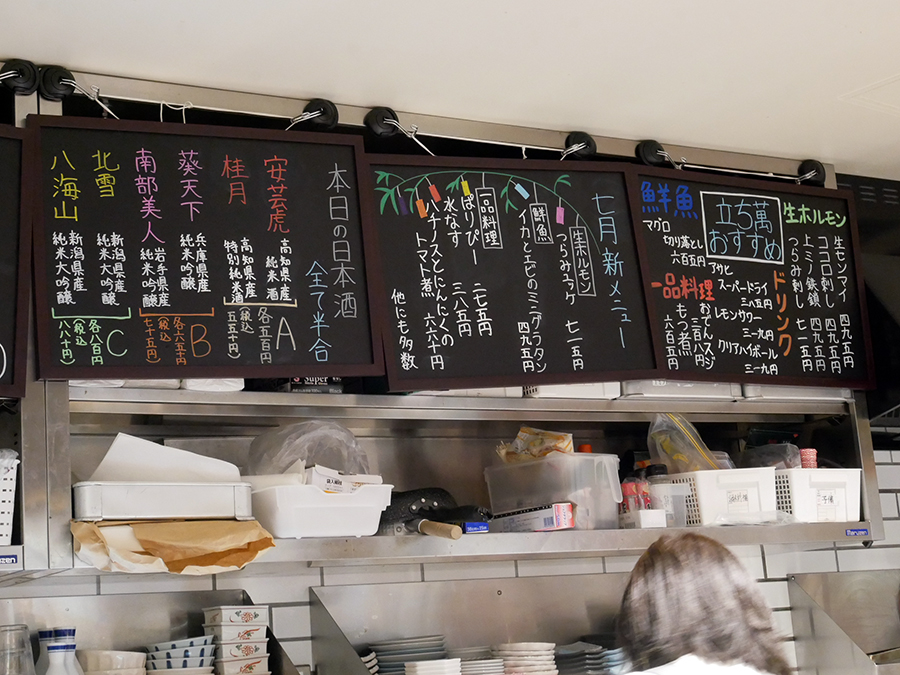 本日の日本酒
全て半合
安芸虎
高知県産
純米酒
桂月
高知県産
特別純米酒
各五百円
(税込
五五十円)
A
葵天下
兵庫県産
純米吟醸
南部美人
岩手県産
純米吟醸
各六五十円
(税込
七十五円)
B
北雪
新潟県産
純米大吟醸
八海山
新潟県産
純米大吟醸
各八百円
(税込
八八十円)
C
七月新メニュー
生ホルモン
つらみユッケ
七一五円
鮮魚
イカとエビのミニグラタン
四九五円
一品料理
ぱりぴー
二七五円
水なす
三八五円
ハチノスとにんにくの
トマト煮
六六十円
他にも多数
立ち萬
おすすめ
生ホルモン
生センマイ
四九五円
ココロ刺し
四九五円
上ミノ鉄鎖
七一五円
つらみ刺し
四九五円
鮮魚
マグロ
切り落とし
六百五円
一品料理
おでんスジ
三百八円
もつ煮
六百五円
ドリンク
アサヒ
スーパードライ
三八五円
レモンサワー
三一九円
クリアハイボール
三一九円
Super
Maruzen
Maruzen